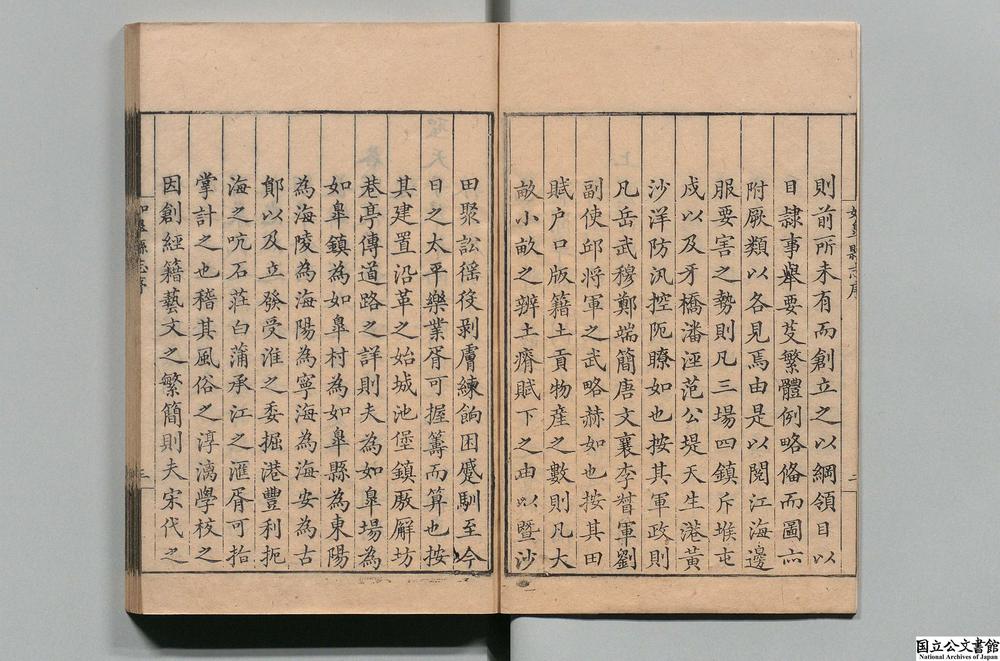 則前所未有而創立之以綱領目以
目隷事舉要芟繁體例略俻而圖亦
附厥類以各見焉由是以閱江海邊
服要害之勢則凡三場四鎮斥堠屯
戍以及牙橋潘涇范公堤天生港黄
沙洋防汛控阨瞭如也按其軍政則
凡岳武穆鄭端簡唐文襄李督軍劉
副使邱將軍之武略赫如也按其田
賦户口版籍土貢物産之數則凡大
畝小畝之辨土瘠賦下之由以暨沙
田聚訟徭役剥膚練餉困蹙馴至今
日之太平樂業胥可握籌而算也按
其建置沿革之始城池堡鎮廒廨坊
巷亭傳道路之詳則夫為如臯場為
如臯鎮為如臯村為如臯縣為東陽
為海陵為海陽為寧海為海安為古
鄖以及立發受淮之委掘港豐利扼
海之吭石莊白蒲承江之滙胥可指
掌計之也稽其風俗之淳漓學校之
因創經籍藝文之繁簡則夫宋代之
二
如臯縣志序
三
国立公文書館
National Archives of Japan